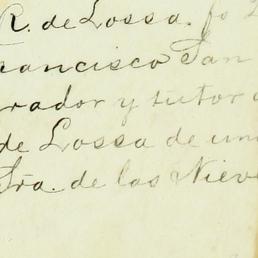 R. de Lossa. fo 2
rancisco San
rador y tutor
de Lossa de un
Sra. de las Nieve